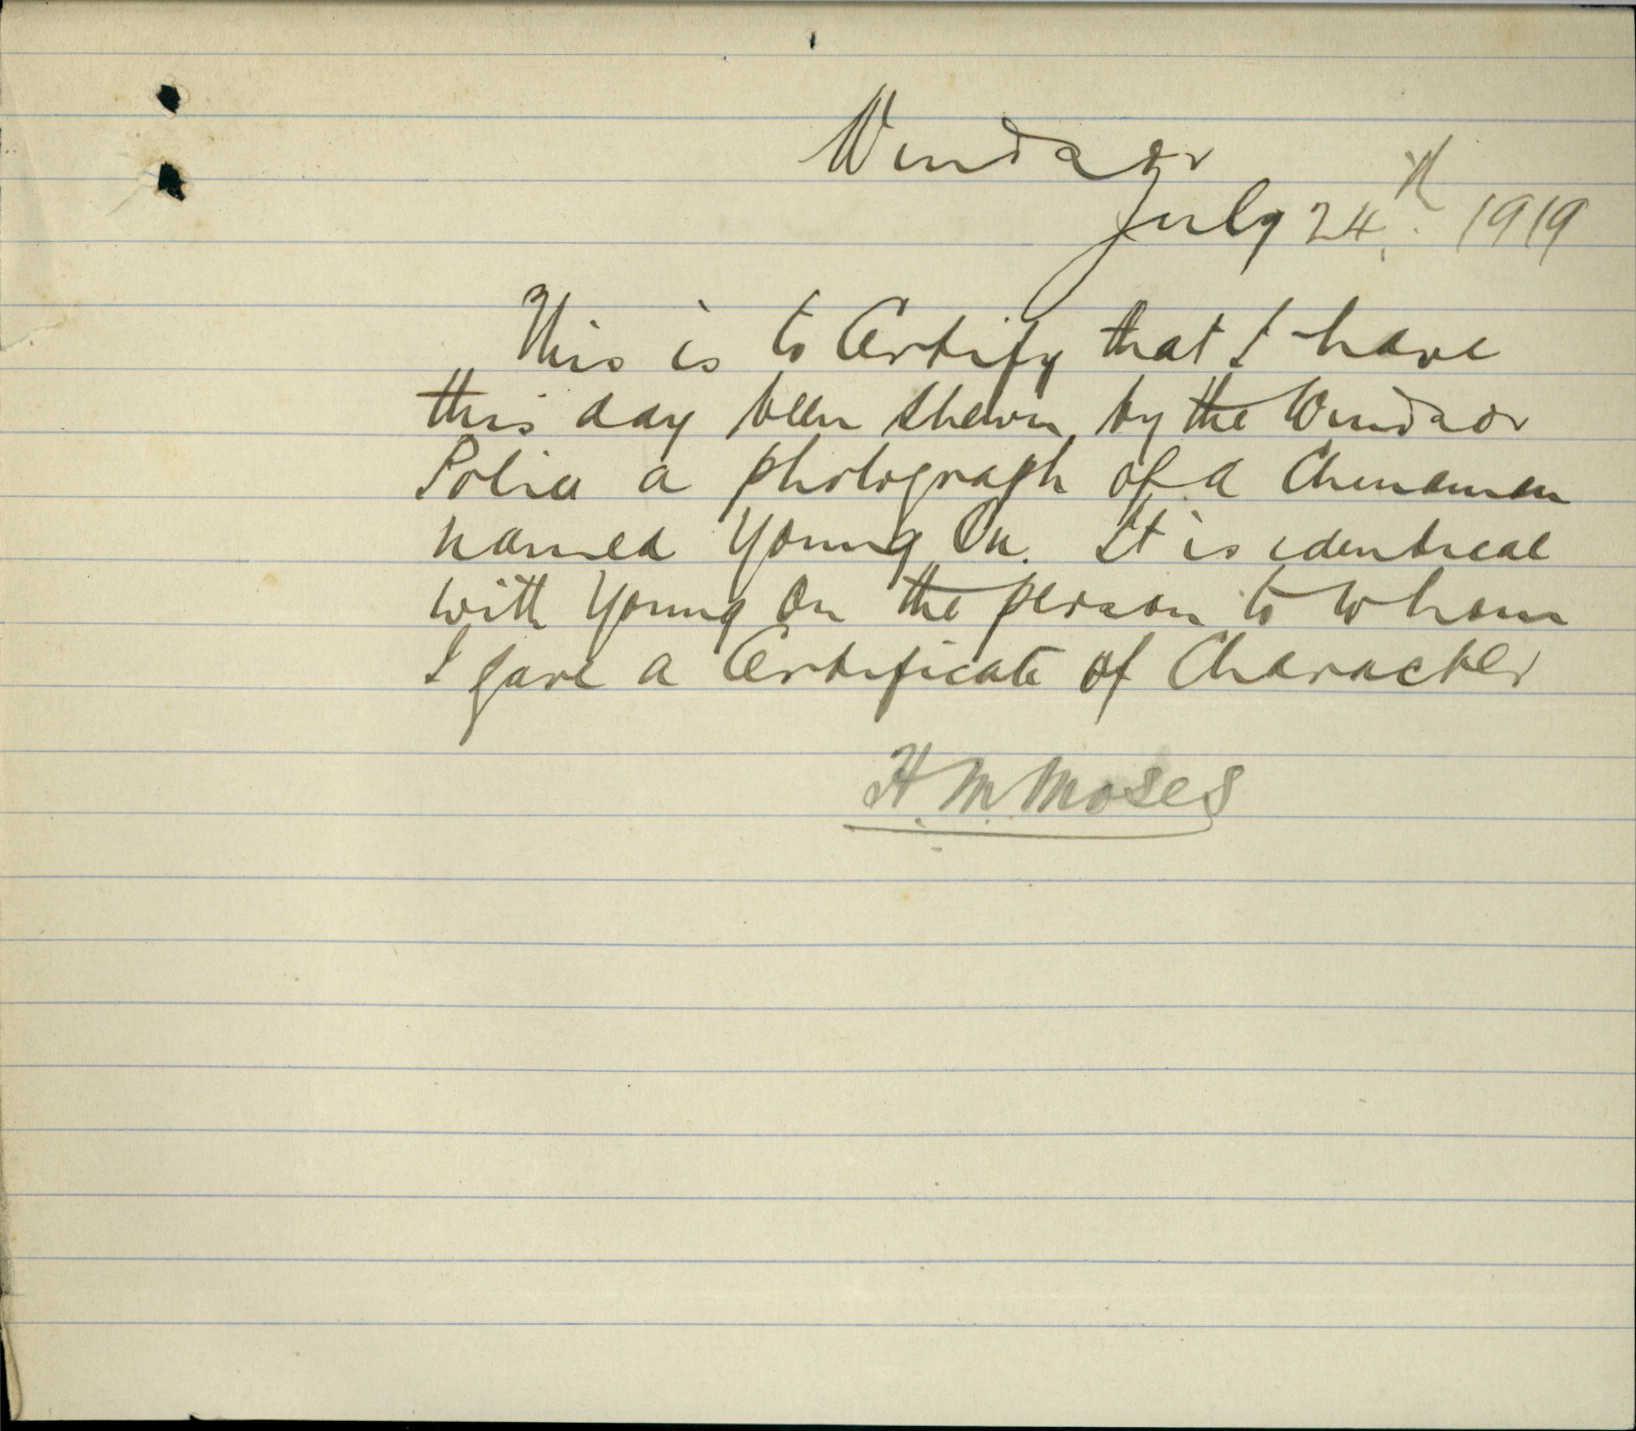 Windsor
July 24th. 1919
This is to Certify that I have
this day been shewn by the Windsor
Police a photograph of a Chinaman
named Young On. It is identical
with Young On the person to whom
I gave a Certificate of Character
H. M. Moses